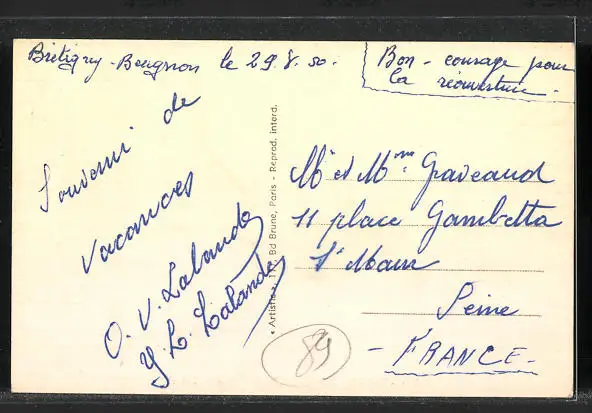 Brétigny - Beugnon le 29.8.50.
Bon - courage pour
la réouverture.
Souvenir de
vacances
O. V. Lalande
Y. L. Lalande
Mr et Mme Graveaud
11 place Gambetta
St Maur
Seine
- FRANCE -
Bd Brune, Paris - Reprod. interd.
89